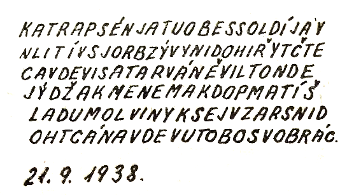 KATRAPSÉNJATUOBESSOLDÍJAY
NLITÍVSJORBZÝVYNIDOHIŘYTČTE
CAVDEVISATARVÁNĚVILTONDE
JÝDŽAKMENEMAKDOPMATÍŠ
LADUMOLVINYKSEJVZARSNID
OHTCÁNAVDEVUTOBOSVOBRÁC.
21. 9. 1938.